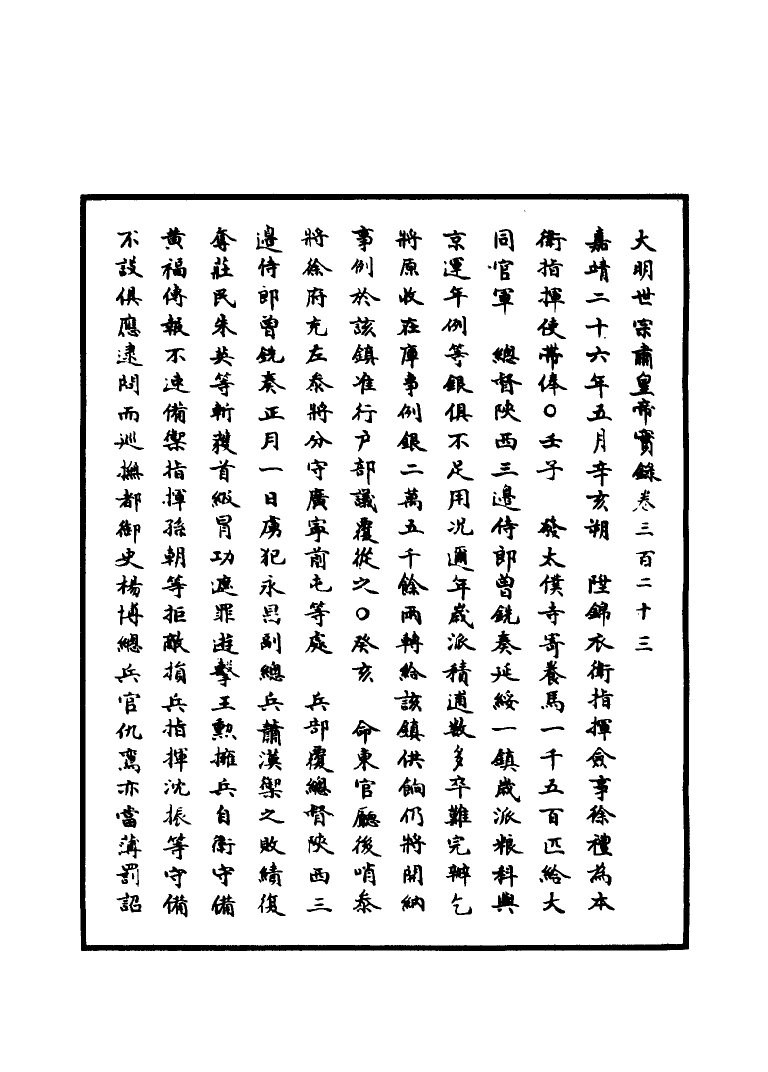 大明世宗肅皇帝實錄卷三百二十三
嘉靖二十六年五月辛亥朔　陞錦衣衛指揮僉事徐禮為本
衛指揮使帶俸○壬子　發太僕寺寄養馬一千五百匹給大
同官軍　總督陝西三邊侍郎曾銑奏延綏一鎮歲派粮料與
京運年例等銀俱不足用况邇年歲派積逋數多卒難完辦乞
將原收在庫事例銀二萬五千餘兩轉給該鎮供餉仍將開納
事例於該鎮准行户部議覆從之○癸亥　命東官廳後哨叅
將徐府充左叅將分守廣寧前屯等處　兵部覆總督陝西三
邊侍郎曾銑奏正月一日虜犯永昌副總兵蕭漢禦之敗績復
奪莊民朱英等斬獲首級冒功遮罪遊擊王勲擁兵自衛守備
黃福傳報不速備禦指揮孫朝等拒敵損兵指揮沈振等守備
不設俱應逮問而巡撫都御史楊博總兵官仇鸞亦當薄罰詔